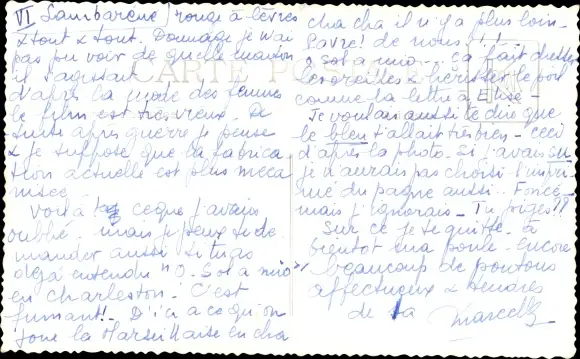 VI Sambarène / rouge à lèvres
& tout & tout. Dommage je n'ai
pas pu voir de quelle maison
il s'agissait
d'après la mode des femmes
le film est très vieux. De
suite après guerre je pense
& je suppose que la fabrica
tion actuelle est plus méca
nisée
Voilà ce que j'avais
oublié. mais je peux te de
mander aussi si tu as
déjà entendu "O. Sol a mio"
en charleston. C'est
fumant! D'ici à ce qu'on
joue la Marseillaise en cha
cha cha il n'y a plus loin.
Pavre! de nous!!!
O sol a mio... ça fait dresser
les oreilles & hérisser le poil
comme la lettre à Elise.
Je voulais aussi te dire que
le bleu t'allait très bien. ceci
d'après la photo. Si j'avais su
je n'aurais pas choisi l'impri
mé du pagne aussi foncé
mais j'ignorais. Tu piges??
Sur ce je te quitte. à
bientôt ma poule. encore
beaucoup de poutous
affectueux & tendres
de ta Marcelle
CARTE POSTALE